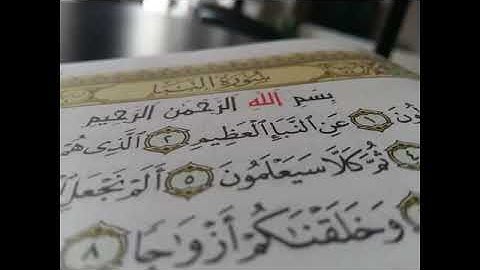 سُورَةُ النَّبَإِ
بِسْمِ اللَّهِ الرَّحْمَٰنِ الرَّحِيمِ
١ عَنِ النَّبَإِ الْعَظِيمِ ٢ الَّذِي
٤ ثُمَّ كَلَّا سَيَعْلَمُونَ ٥ أَلَمْ نَجْعَلِ
وَخَلَقْنَاكُمْ أَزْوَاجًا ٨